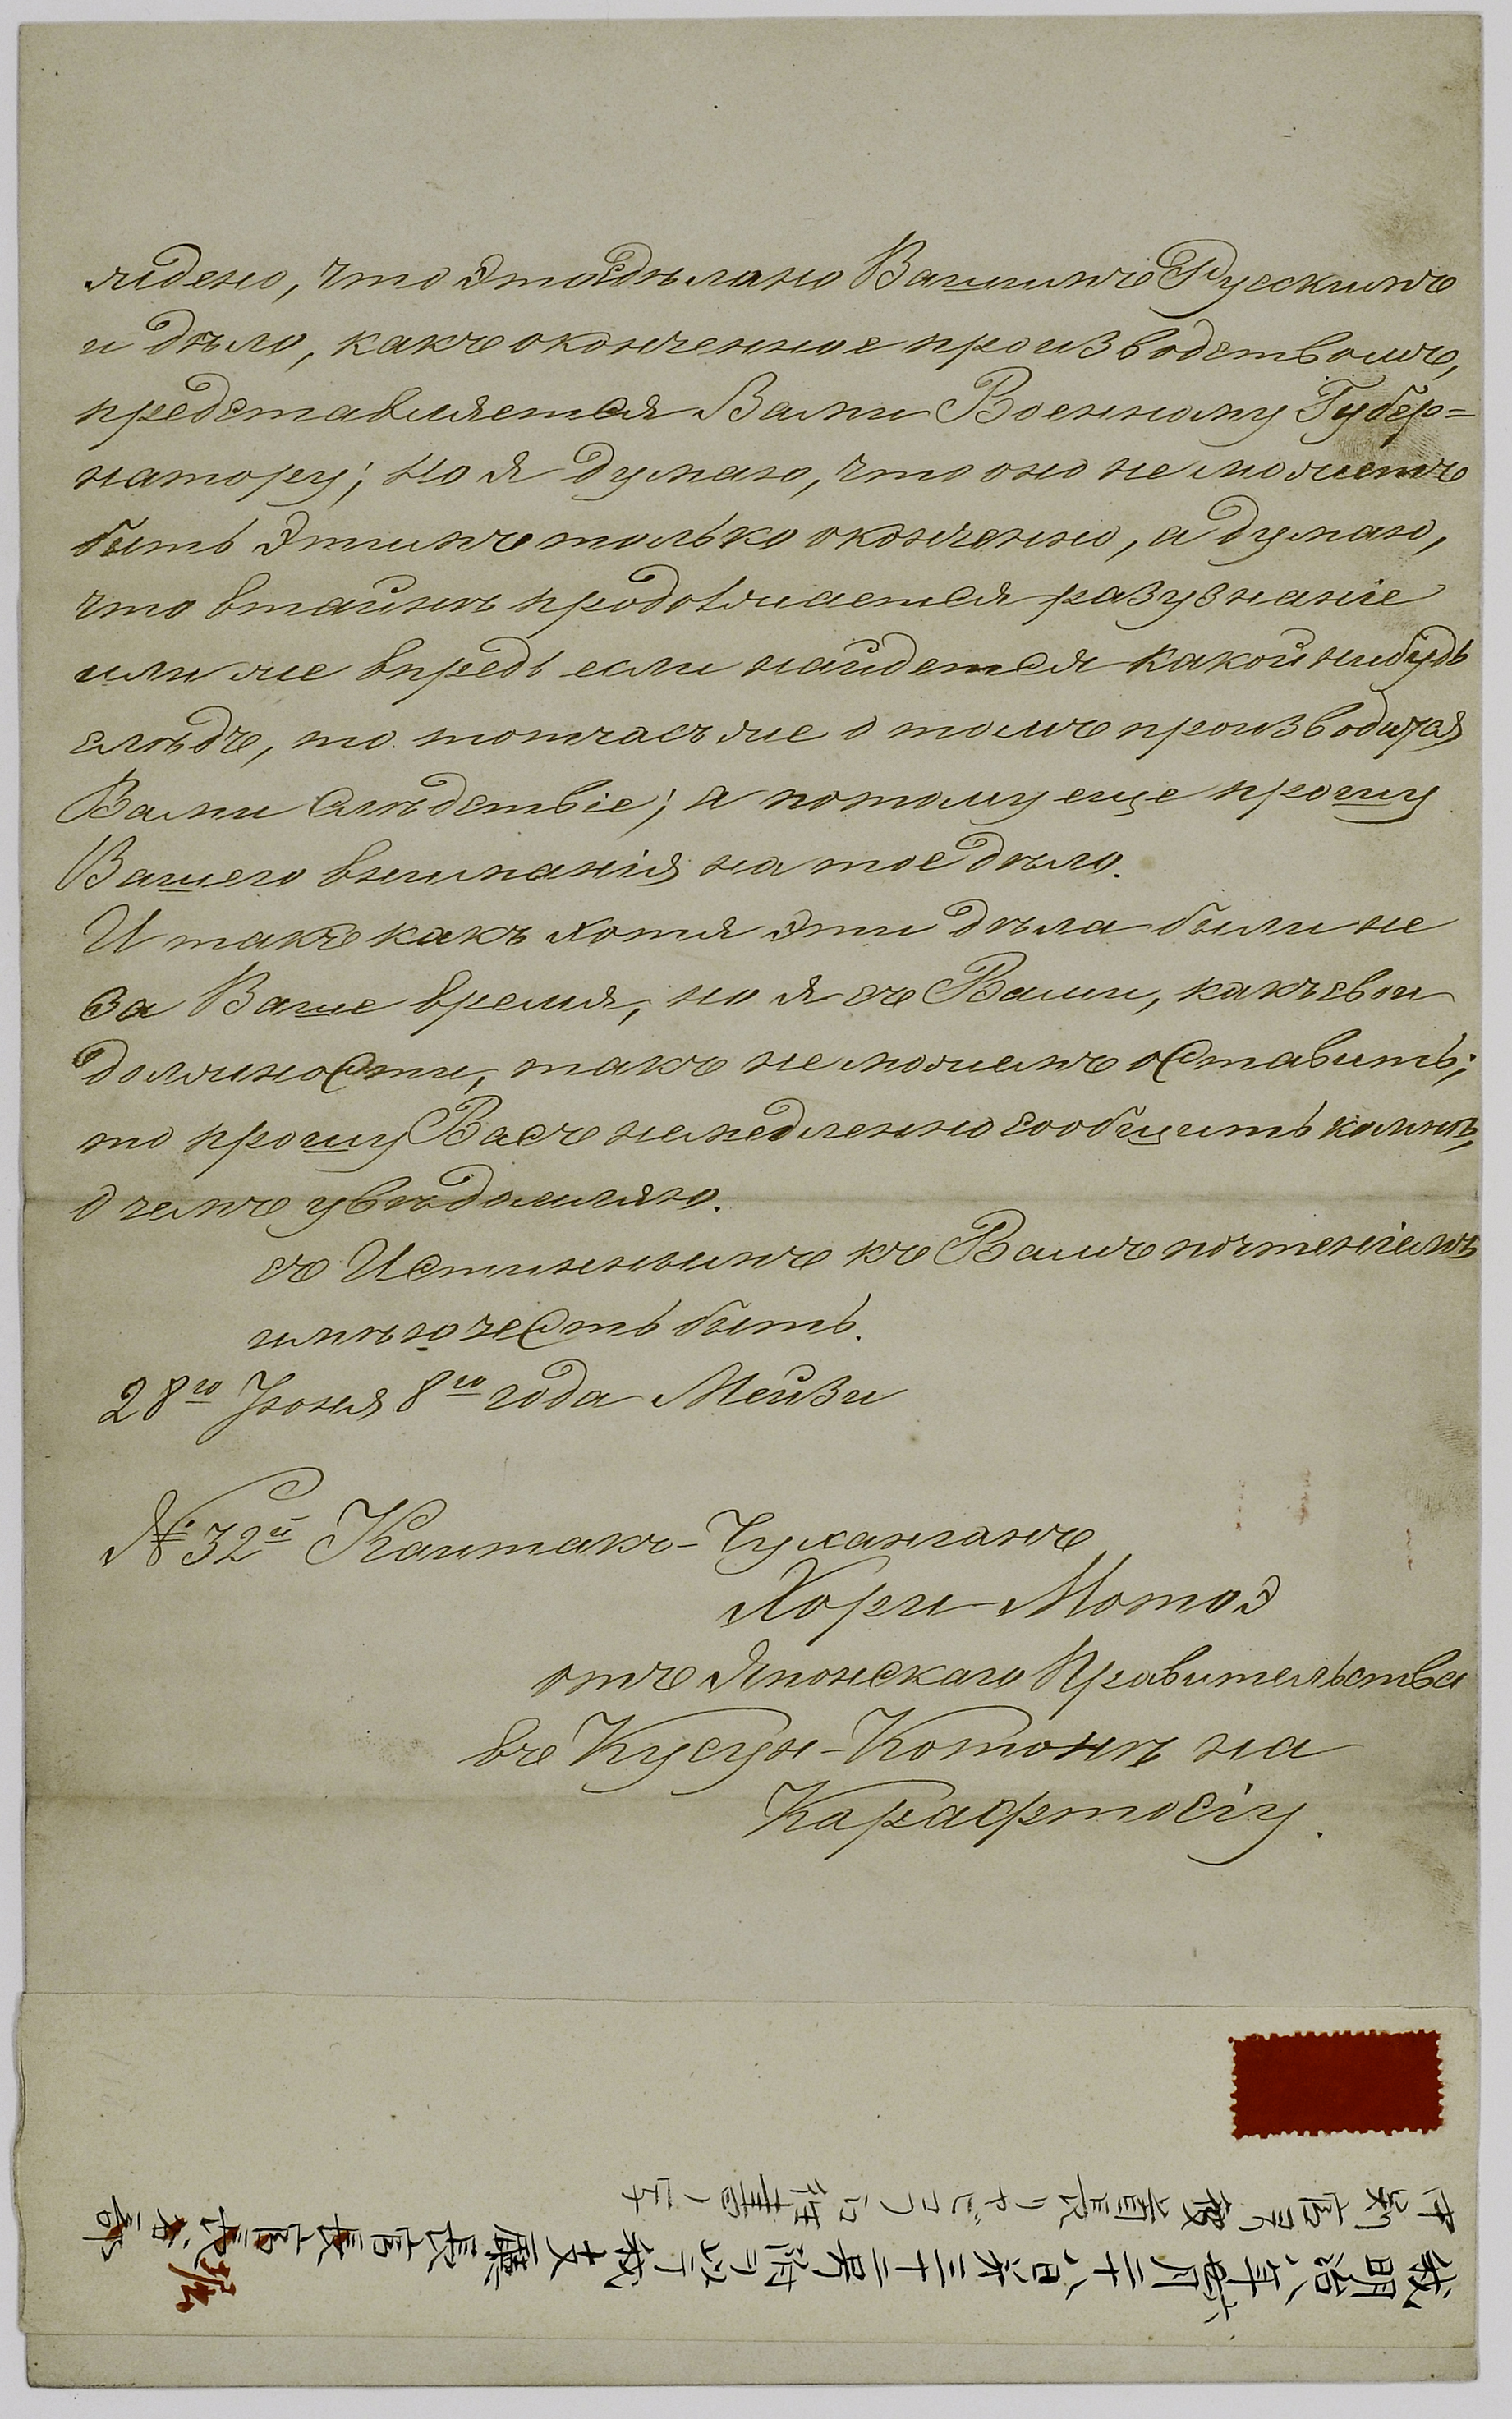 ждено, что это сдѣлано Вашимъ Русскимъ
и дѣло, какъ оконченное производствомъ,
представляется Вами Военному Губер=
натору; но я думаю, что оно не можетъ
быть этимъ только окончено, а думаю,
что втайнѣ продолжается разузнаніе
или же впредь если найдется какой нибудь
слѣдъ, то тотчасъ же о томъ производится
Вами слѣдствіе; а потому еще прошу
Вашего вниманія на тое дѣло.
И такъ какъ хотя эти дѣла были не
За Ваше время, но я съ Вами, какъ свои
должности, такъ не можемъ оставить;
то прошу Васъ немедленно сообщить ко мнѣ,
о чемъ увѣдомляю.
съ Истиннымъ къ Вамъ почтеніемъ
имѣю честь быть.
28го Іюня 8го года Мейзи
№ 32й Каитакъ-Чухангонъ
Хори Мотоэ
отъ Японскаго Правительства
въ Кусун-Котонѣ на
Карафтосіу.
我明治八年 月二十八日 三十二号附ヲ以テ我支廳長官